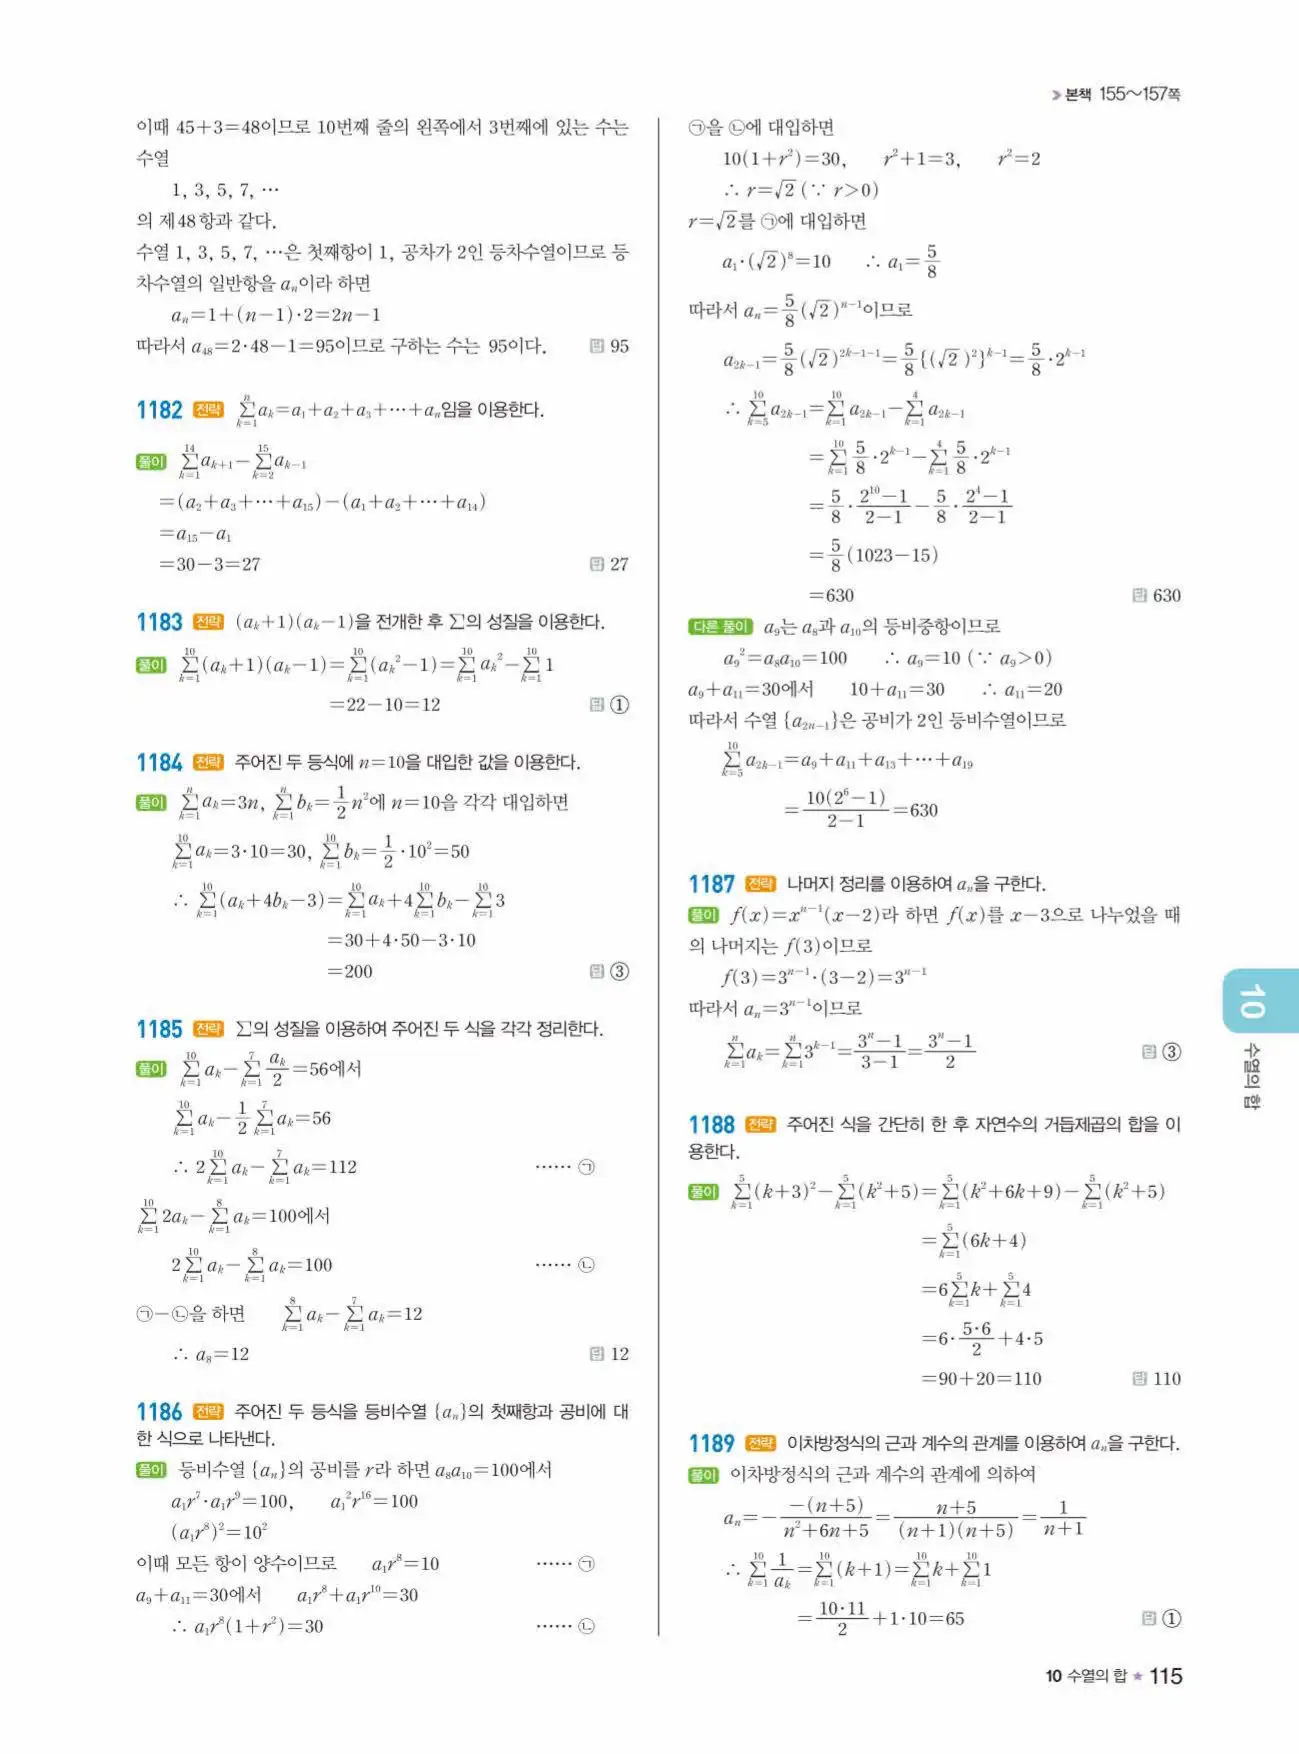 » 본책 155~157쪽
이때 45+3=48이므로 10번째 줄의 왼쪽에서 3번째에 있는 수는
수열
1, 3, 5, 7, …
의 제48항과 같다.
수열 1, 3, 5, 7, …은 첫째항이 1, 공차가 2인 등차수열이므로 등
차수열의 일반항을 aₙ이라 하면
aₙ=1+(n-1)·2=2n-1
따라서 a₄₈=2·48-1=95이므로 구하는 수는 95이다. 답 95
1182 전략 ∑_{k=1}^{n} a_k=a₁+a₂+a₃+…+aₙ임을 이용한다.
풀이 ∑_{k=1}^{14} a_{k+1}-∑_{k=2}^{15} a_{k-1}
=(a₂+a₃+…+a₁₅)-(a₁+a₂+…+a₁₄)
=a₁₅-a₁
=30-3=27 답 27
1183 전략 (a_k+1)(a_k-1)을 전개한 후 ∑의 성질을 이용한다.
풀이 ∑_{k=1}^{10} (a_k+1)(a_k-1)=∑_{k=1}^{10} (a_k²-1)=∑_{k=1}^{10} a_k²-∑_{k=1}^{10} 1
=22-10=12 답 ①
1184 전략 주어진 두 등식에 n=10을 대입한 값을 이용한다.
풀이 ∑_{k=1}^{n} a_k=3n, ∑_{k=1}^{n} b_k=1/2 n²에 n=10을 각각 대입하면
∑_{k=1}^{10} a_k=3·10=30, ∑_{k=1}^{10} b_k=1/2·10²=50
∴ ∑_{k=1}^{10} (a_k+4b_k-3)=∑_{k=1}^{10} a_k+4∑_{k=1}^{10} b_k-∑_{k=1}^{10} 3
=30+4·50-3·10
=200 답 ③
1185 전략 ∑의 성질을 이용하여 주어진 두 식을 각각 정리한다.
풀이 ∑_{k=1}^{10} a_k-∑_{k=1}^{7} a_k/2=56에서
∑_{k=1}^{10} a_k-1/2 ∑_{k=1}^{7} a_k=56
∴ 2∑_{k=1}^{10} a_k-∑_{k=1}^{7} a_k=112 …… ㉠
∑_{k=1}^{10} 2a_k-∑_{k=1}^{8} a_k=100에서
2∑_{k=1}^{10} a_k-∑_{k=1}^{8} a_k=100 …… ㉡
㉠-㉡을 하면 ∑_{k=1}^{8} a_k-∑_{k=1}^{7} a_k=12
∴ a₈=12 답 12
1186 전략 주어진 두 등식을 등비수열 {aₙ}의 첫째항과 공비에 대
한 식으로 나타낸다.
풀이 등비수열 {aₙ}의 공비를 r라 하면 a₈a₁₀=100에서
a₁r⁷·a₁r⁹=100, a₁²r¹⁶=100
(a₁r⁸)²=10²
이때 모든 항이 양수이므로 a₁r⁸=10 …… ㉠
a₉+a₁₁=30에서 a₁r⁸+a₁r¹⁰=30
∴ a₁r⁸(1+r²)=30 …… ㉡
㉠을 ㉡에 대입하면
10(1+r²)=30, r²+1=3, r²=2
∴ r=√2 (∵ r>0)
r=√2를 ㉠에 대입하면
a₁·(√2)⁸=10 ∴ a₁=5/8
따라서 aₙ=5/8(√2)ⁿ⁻¹이므로
a_{2k-1}=5/8(√2)^{2k-1-1}=5/8{(√2)²}^{k-1}=5/8·2^{k-1}
∴ ∑_{k=5}^{10} a_{2k-1}=∑_{k=1}^{10} a_{2k-1}-∑_{k=1}^{4} a_{2k-1}
=∑_{k=1}^{10} 5/8·2^{k-1}-∑_{k=1}^{4} 5/8·2^{k-1}
=5/8·(2¹⁰-1)/(2-1)-5/8·(2⁴-1)/(2-1)
=5/8(1023-15)
=630 답 630
다른 풀이 a₉는 a₈과 a₁₀의 등비중항이므로
a₉²=a₈a₁₀=100 ∴ a₉=10 (∵ a₉>0)
a₉+a₁₁=30에서 10+a₁₁=30 ∴ a₁₁=20
따라서 수열 {a_{2n-1}}은 공비가 2인 등비수열이므로
∑_{k=5}^{10} a_{2k-1}=a₉+a₁₁+a₁₃+…+a₁₉
=10(2⁶-1)/(2-1)=630
1187 전략 나머지 정리를 이용하여 aₙ을 구한다.
풀이 f(x)=xⁿ⁻¹(x-2)라 하면 f(x)를 x-3으로 나누었을 때
의 나머지는 f(3)이므로
f(3)=3ⁿ⁻¹·(3-2)=3ⁿ⁻¹
따라서 aₙ=3ⁿ⁻¹이므로
∑_{k=1}^{n} a_k=∑_{k=1}^{n} 3^{k-1}=(3ⁿ-1)/(3-1)=(3ⁿ-1)/2 답 ③
1188 전략 주어진 식을 간단히 한 후 자연수의 거듭제곱의 합을 이
용한다.
풀이 ∑_{k=1}^{5} (k+3)²-∑_{k=1}^{5} (k²+5)=∑_{k=1}^{5} (k²+6k+9)-∑_{k=1}^{5} (k²+5)
=∑_{k=1}^{5} (6k+4)
=6∑_{k=1}^{5} k+∑_{k=1}^{5} 4
=6·5·6/2+4·5
=90+20=110 답 110
1189 전략 이차방정식의 근과 계수의 관계를 이용하여 aₙ을 구한다.
풀이 이차방정식의 근과 계수의 관계에 의하여
aₙ=-{-(n+5)}/(n²+6n+5)=(n+5)/{(n+1)(n+5)}=1/(n+1)
∴ ∑_{k=1}^{10} 1/a_k=∑_{k=1}^{10} (k+1)=∑_{k=1}^{10} k+∑_{k=1}^{10} 1
=10·11/2+1·10=65 답 ①
10
수열의 합
10 수열의 합 ★ 115